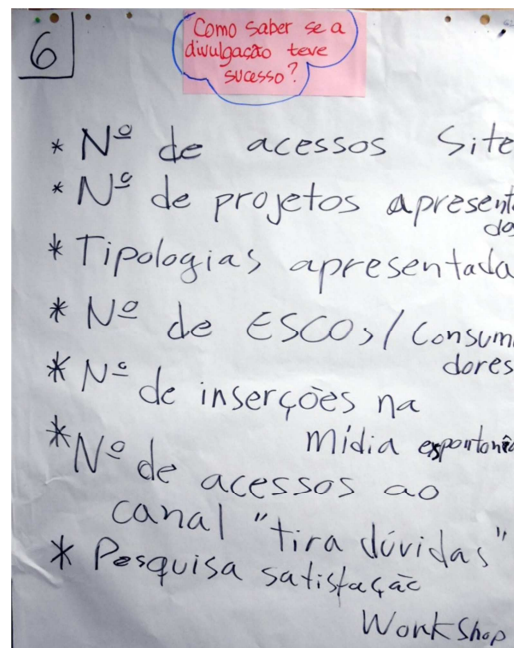 6
Como saber se a
divulgação teve
sucesso?
* Nº de acessos Site
* Nº de projetos apresent
dos
* Tipologias apresentada
* Nº de ESCOs/Consum
dores
* Nº de inserções na
mídia espontânea
* Nº de acessos ao
canal "tira dúvidas"
* Pesquisa satisfação
Workshop